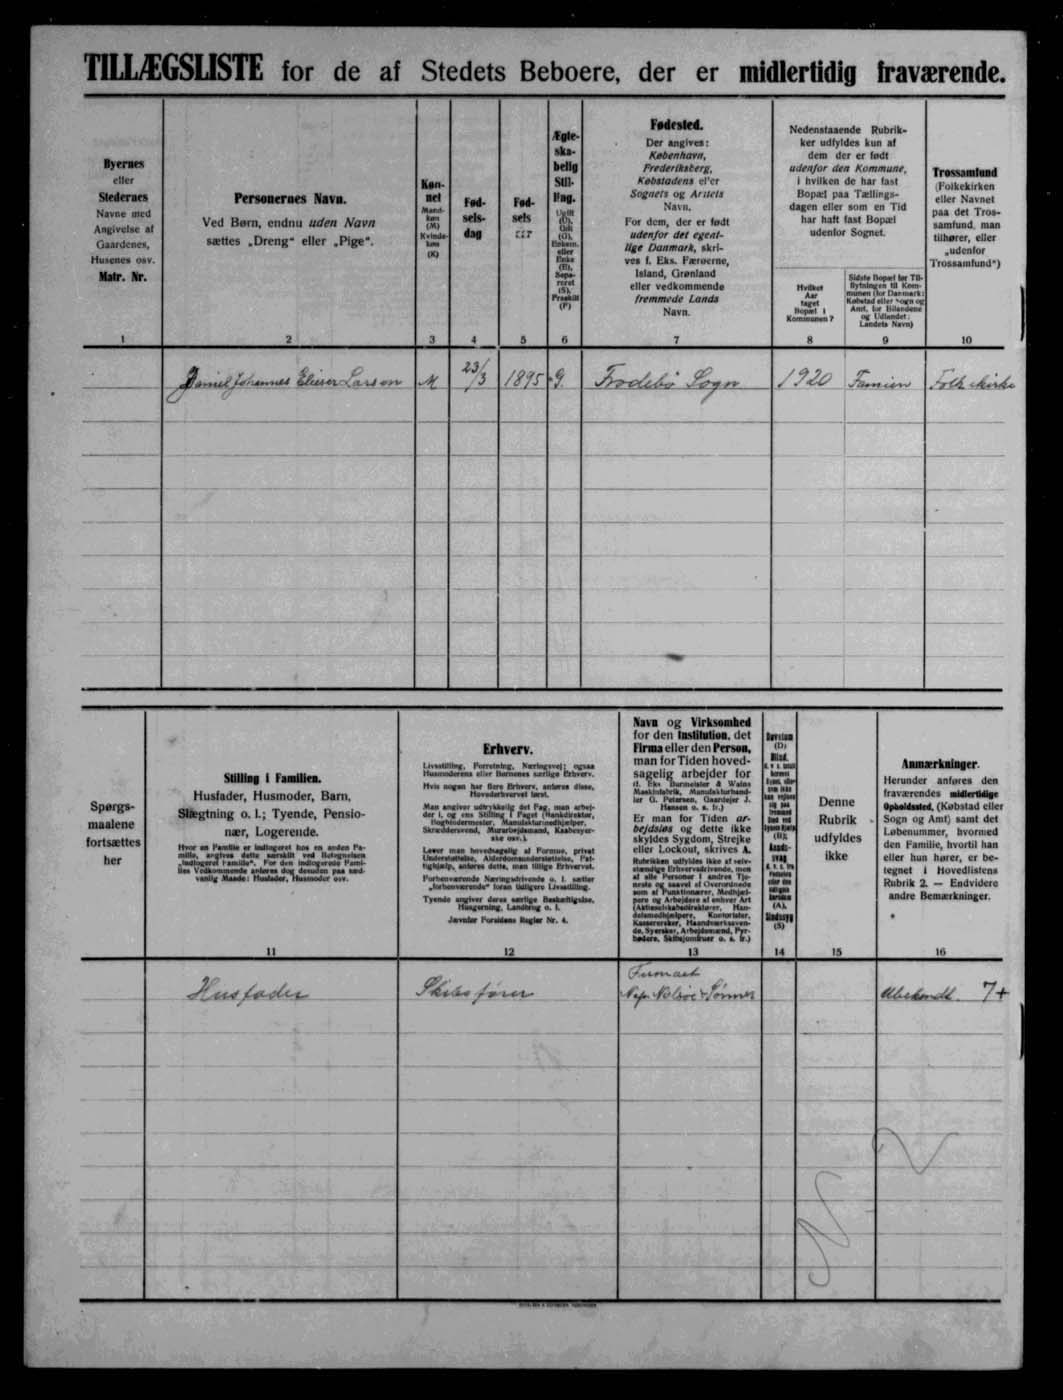 TILLÆGSLISTE for de af Stedets Beboere, der er midlertidig fraværende.
Byernes
eller
Stedernes
Navne med
Angivelse af
Gaardenes,
Husenes osv.
Matr. Nr.
1
Personernes Navn.
Ved Børn, endnu uden Navn
sættes „Dreng“ eller „Pige“.
2
Køn-
net
Mand-
køn
(M)
Kvinde-
køn
(K)
3
Fød-
sels-
dag
4
Fød-
sels
5
Ægte-
ska-
belig
Stil-
ling.
Ugift
(U),
Gift
(G),
Enkem.
eller
Enke
(E),
Sepa-
reret
(S),
Fraskilt
(F)
6
Fødested.
Der angives:
København,
Frederiksberg,
Købstadens eller
Sognets og Amtets
Navn.
For dem, der er født
udenfor det egent-
lige Danmark, skri-
ves f. Eks. Færøerne,
Island, Grønland
eller vedkommende
fremmede Lands
Navn.
7
Nedenstaaende Rubrik-
ker udfyldes kun af
dem der er født
udenfor den Kommune,
i hvilken de har fast
Bopæl paa Tællings-
dagen eller som en Tid
har haft fast Bopæl
udenfor Sognet.
Hvilket
Aar
taget
Bopæl i
Kommunen?
8
Sidste Bopæl før Til-
flytningen til Kom-
munen (for Danmark:
Købstad eller Sogn og
Amt, for Bilandene
og Udlandet:
Landets Navn)
9
Trossamfund
(Folkekirken
eller Navnet
paa det Tros-
samfund, man
tilhører, eller
„udenfor
Trossamfund“)
10
Daniel Johannes Elieser Larsen M 23/3 1895 G. Frodebø Sogn 1920 Famien Folkekirke
Spørgs-
maalene
fortsættes
her
Stilling i Familien.
Husfader, Husmoder, Barn,
Slægtning o. l.; Tyende, Pensio-
nær, Logerende.
Hvor en Familie er indlogeret hos en anden Fa-
milie, angives dette særskilt ved Betegnelsen
„indlogeret Familie“. For den indlogerede Fami-
lies Vedkommende anføres dog desuden paa sæd-
vanlig Maade: Husfader, Husmoder osv.
11
Erhverv.
Livsstilling, Forretning, Næringsvej; ogsaa
Husmoderens eller Børnenes særlige Erhverv.
Hvis nogen har flere Erhverv, anføres disse,
Hovederhvervet først.
Man angiver udtrykkelig det Fag, man arbej-
der i, og ens Stilling i Faget (Bankdirektør,
Bogbindermester, Manufakturmedhjælper,
Skræddersvend, Murarbejdsmand, Kasbesyer-
ske osv.).
Lever man hovedsagelig af Formue, privat
Understøttelse, Alderdomsunderstøttelse, Fat-
tighjælp, anføres dette, man tillige Erhvervet.
Forhenværende Næringsdrivende o. l. sætter
„forhenværende“ foran tidligere Livsstilling.
Tyende angiver deres særlige Beskæftigelse,
Husgerning, Landbrug o. l.
Jævnfør Forsidens Regler Nr. 4.
12
Navn og Virksomhed
for den Institution, det
Firma eller den Person,
man for Tiden hoved-
sagelig arbejder for
(f. Eks Burmeister & Wains
Maskinfabrik, Manufakturhand-
ler G. Petersen, Gaardejer J.
Hansen o. s. fr.)
Er man for Tiden ar-
bejdsløs og dette ikke
skyldes Sygdom, Strejke
eller Lockout, skrives A.
Rubrikken udfyldes ikke af selv-
stændige Erhvervsdrivende, men
af alle Personer i andres Tje-
neste og saavel af Overordnede
som af Funktionærer, Medhjæl-
pere og Arbejdere af enhver Art
(Aktieselskabsdirektører, Han-
delsmedhjælpere, Kontorister,
Kassererskør, Haandværkssven-
de, Syersker, Arbejdsmænd, Fyr-
bødere, Skibsjomfruer o. s. fr.)
13
Døvstum
(D)
Blind,
(B),
Aands-
svag
(A),
Sindssyg
(S)
14
Denne
Rubrik
udfyldes
ikke
15
Anmærkninger.
Herunder anføres den
fraværendes midlertidige
Opholdssted, (Købstad eller
Sogn og Amt) samt det
Løbenummer, hvormed
den Familie, hvortil han
eller hun hører, er be-
tegnet i Hovedlistens
Rubrik 2. — Endvidere
andre Bemærkninger.
16
Husfader Skibsfører Firmaet
Nolsøe & Sønner Ubekendt. 7+
N. 2